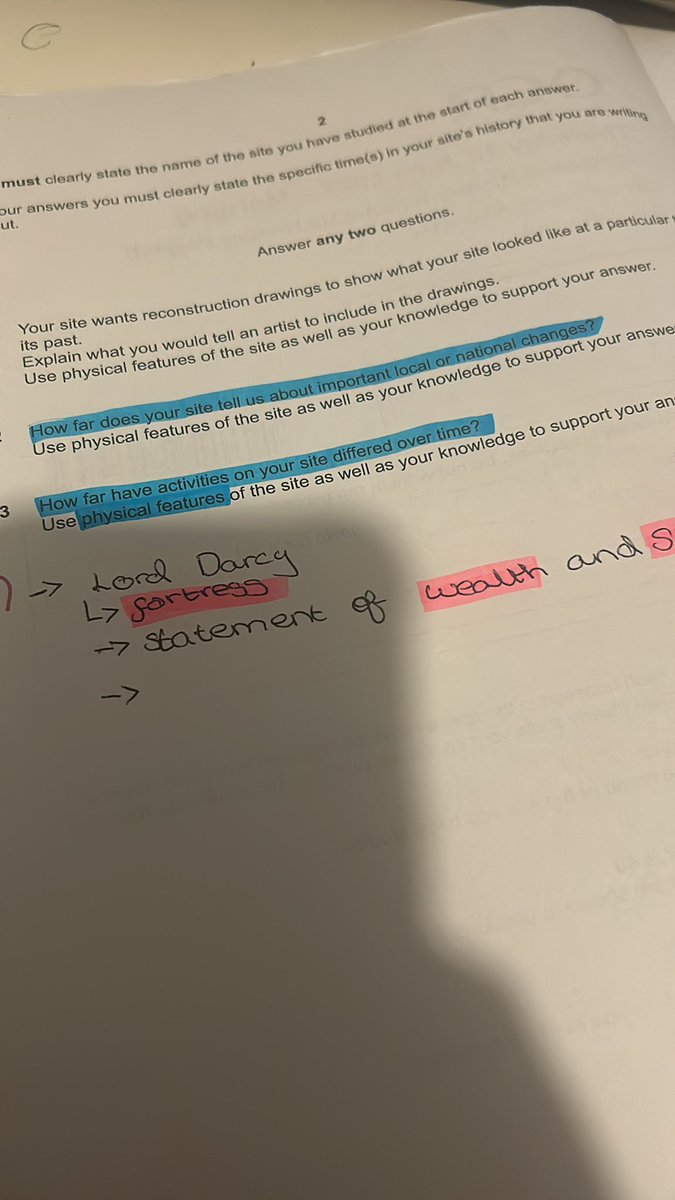 2
must clearly state the name of the site you have studied at the start of each answer.
our answers you must clearly state the specific time(s) in your site's history that you are writing
ut.
Answer any two questions.
Your site wants reconstruction drawings to show what your site looked like at a particular
its past.
Explain what you would tell an artist to include in the drawings.
Use physical features of the site as well as your knowledge to support your answer.
How far does your site tell us about important local or national changes?
Use physical features of the site as well as your knowledge to support your answe
3 How far have activities on your site differed over time?
Use physical features of the site as well as your knowledge to support your an
-> Lord Darcy
L> fortress
-> statement of wealth and S
->